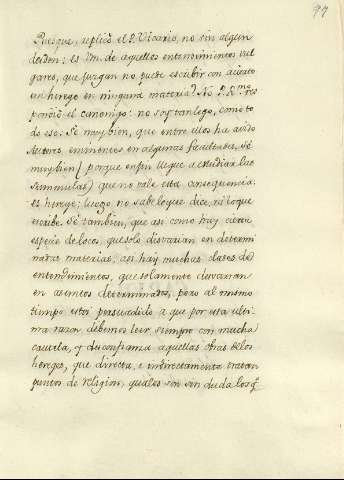 97
Pues que, replicò el P. Vicario, no sin algun
desden; es Vm. de aquellos entendimientos vul
gares, que juzgan no puede escribir con acierto
un herege en ninguna materia? No P. R.mo res
pondiò el canonigo: no soy tan lego, como to
do eso. Sé muy bien, que entre ellos ha avido
Autores eminentes en algunas facultades. Sé
muy bien (porque en fin llegue a estudiar las
sumulas) que no vale esta consequencia:
es herege; luego no sabe lo que dice, ni lo que
escribe. Sé tambien, que asi como hay cierta
especie de locos, que solo disvarian en determi
nadas materias; asi hay muchas clases de
entendimientos, que solamente desvarran
en asuntos determinados, pero al mismo
tiempo estoi persuadido a que por esta ulti
ma razon debemos leer siempre con mucha
cautela, y desconfianza aquellas obras de los
hereges, que directa, o indirectamente tratan
puntos de religion, quales son sin duda los q.e